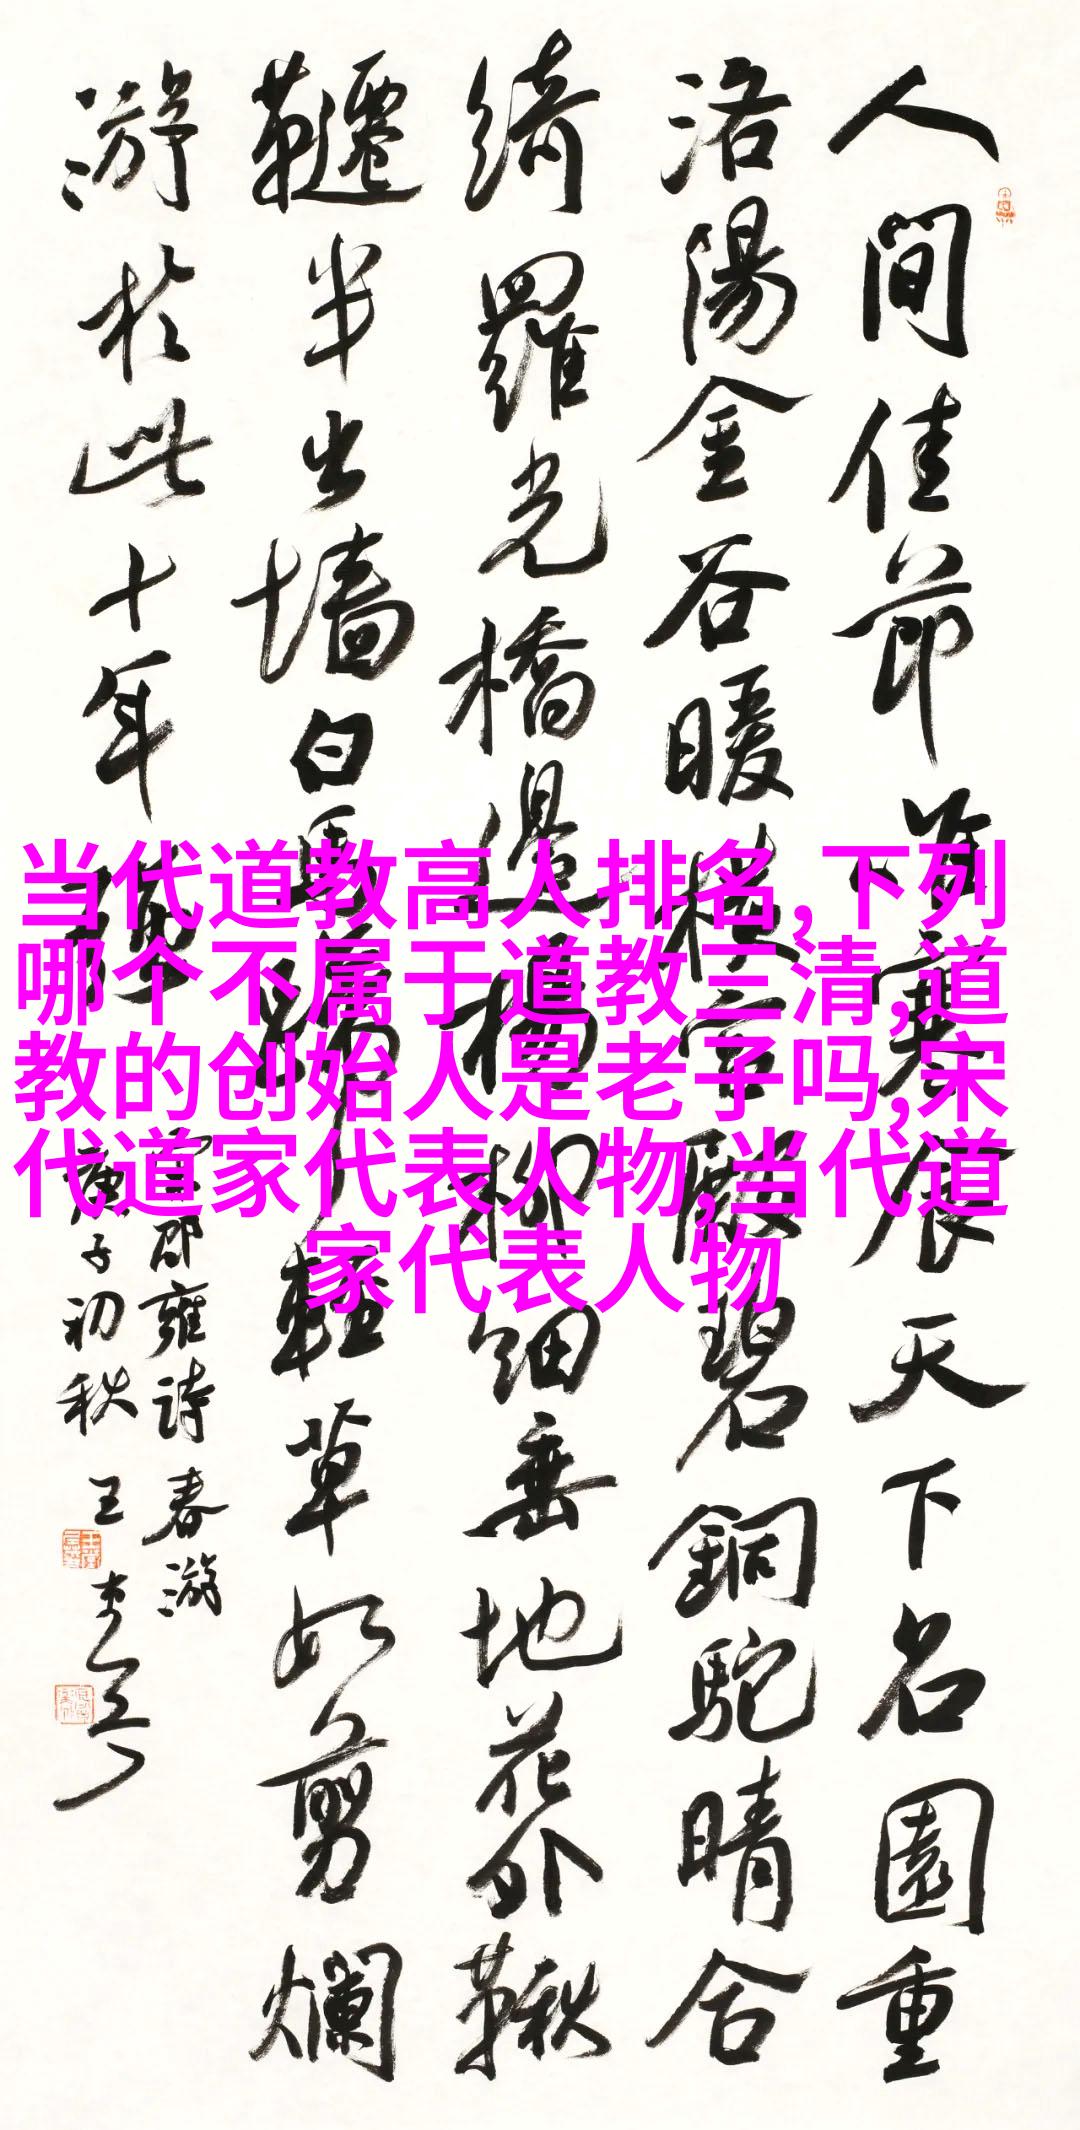 人間佳節寒食天下名園重
洛陽金谷暖橫宮殿碧銅駝晴合
綺羅光橋邊楊柳細垂地花外鞦
韆半出墙白馬蹄輕草如剪爛
游於此十年強
宋邵雍詩春游
庚子初秋王
当代道教高人排名,下列
哪个不属于道教三清,道
教的创始人是老子吗,宋
代道家代表人物,当代道
家代表人物